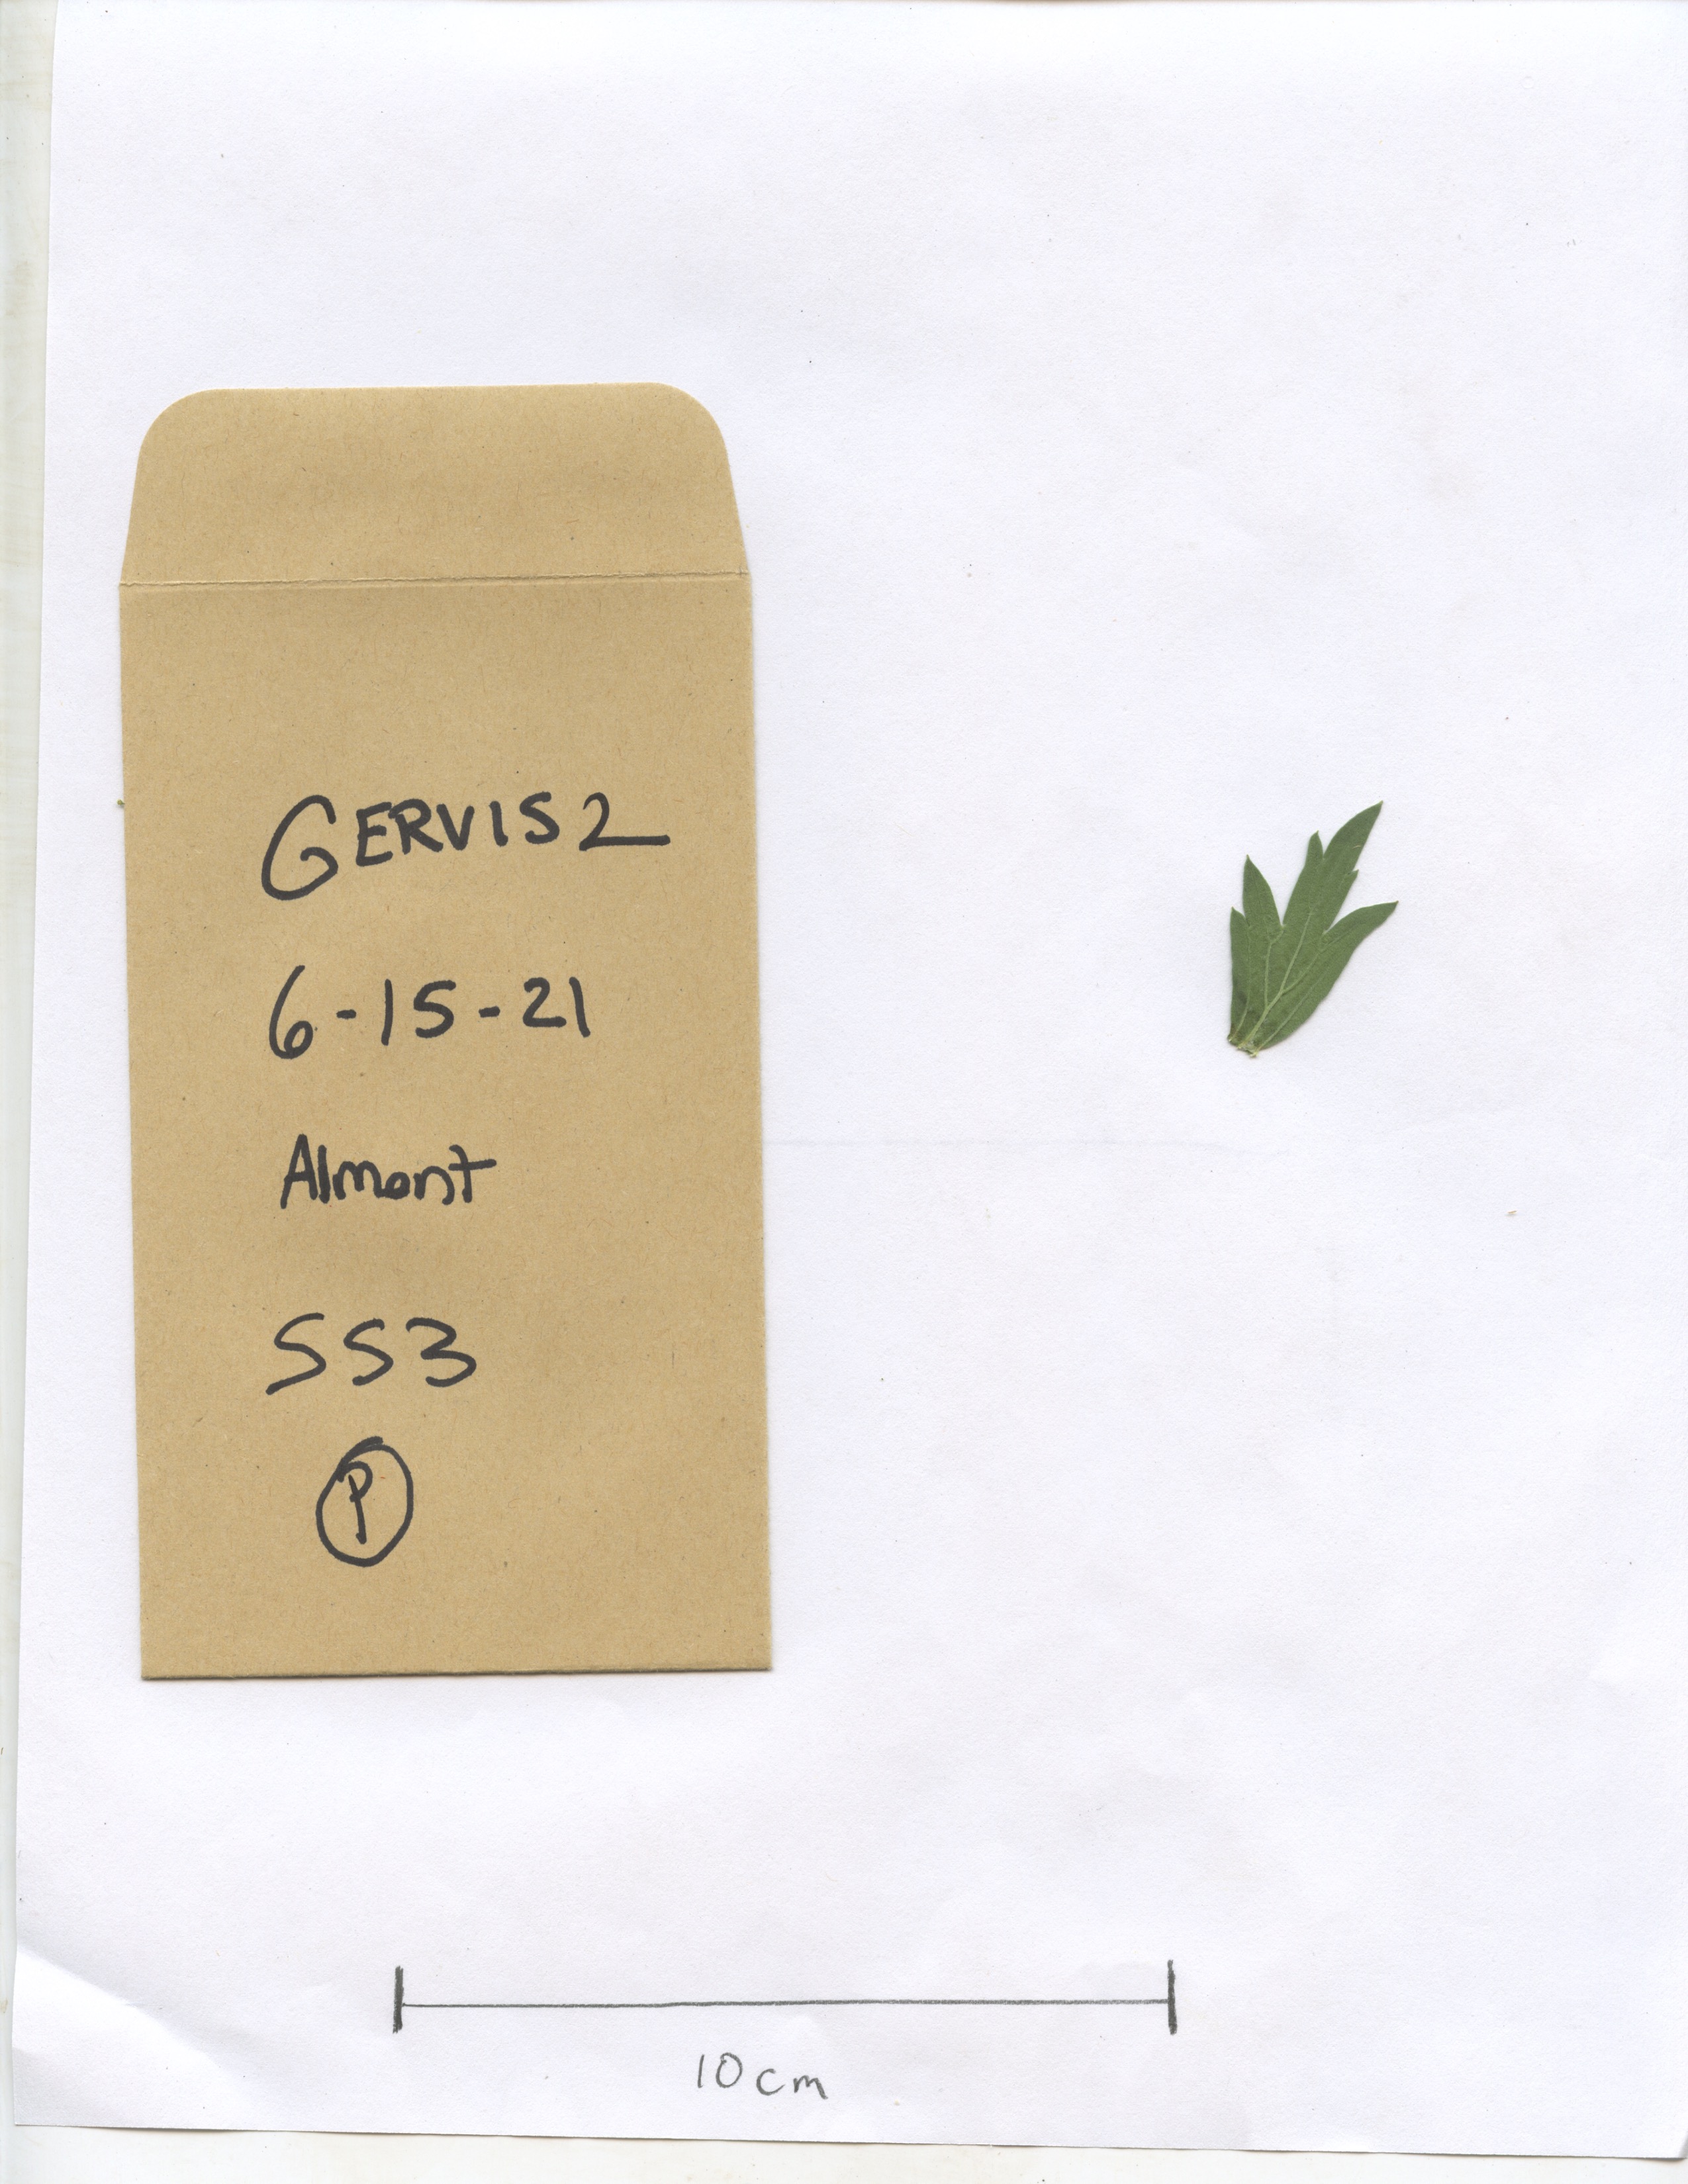 GERVIS2
6-15-21
Almont
SS3
P
10cm